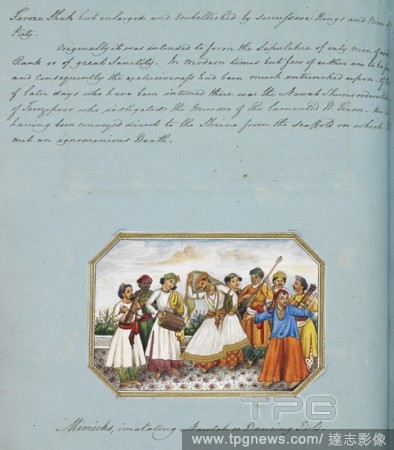 Feroze Shah but enlarged and embellished by successive Kings and men of
Piety.
Originally it was intended to form the Sepulchre of only men of
Rank or of great Sanctity. In modern times but few of either are to be
and consequently the exclusiveness had been much entrenched upon.
of later days who have been interred there was the Nawab Shumsooddeen
of Ferozpoor who instigated the murder of the lamented W Fraser.
having been conveyed direct to the Shrine from the scaffold on which
met an ignomenious Death.
Mimicks, imatating Nautch or Dancing Girls
TPG
www.tpgnews.com/達志影像